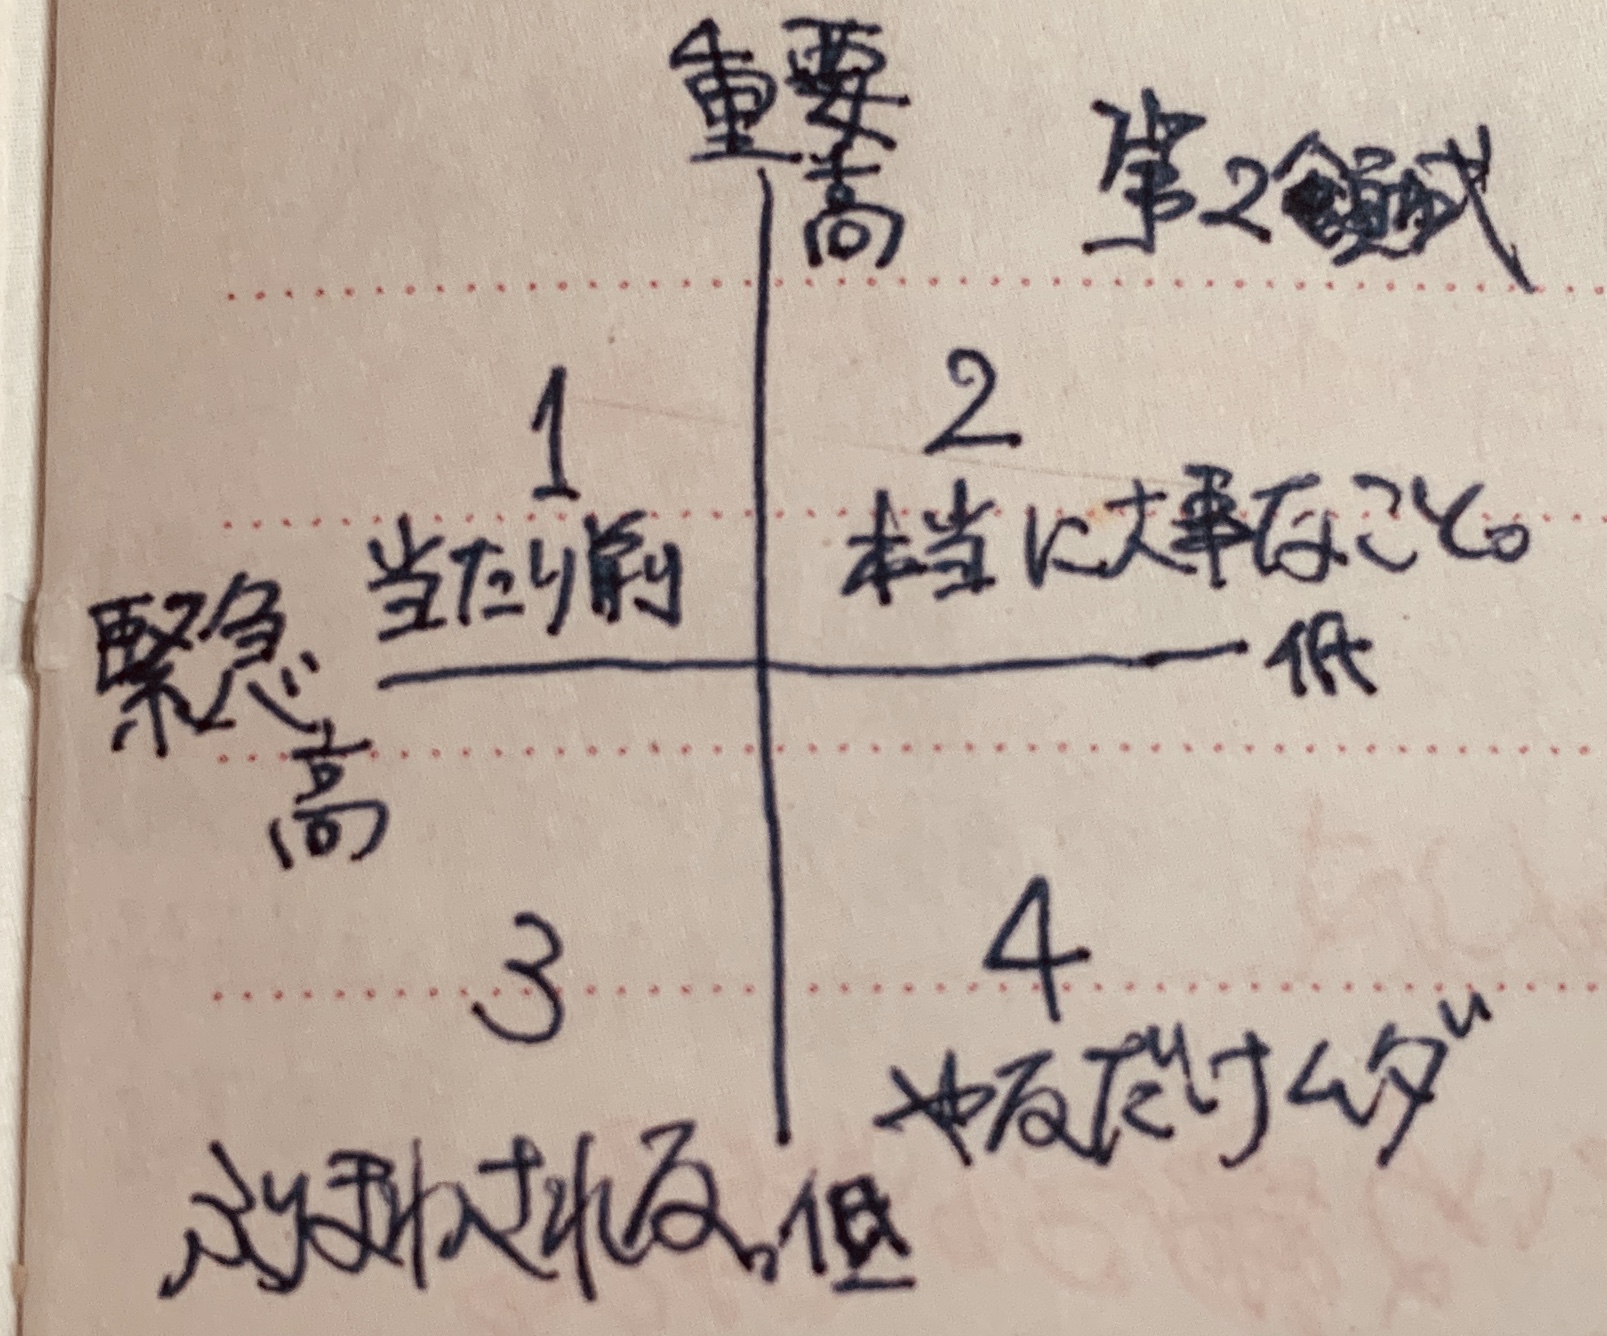 重要
高
第2領域
1
2
当たり前
本当に大事なこと。
緊急
高
低
3
4
やるだけムダ
ふりまわされる。
低